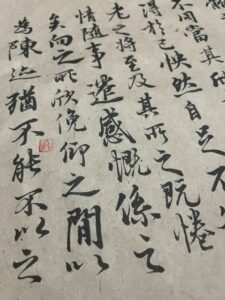 不同當其
得於己快然自足不
老之將至及其所之既倦
情隨事遷感慨係之
矣向之所欣俛仰之間以
為陳迹猶不能不以之